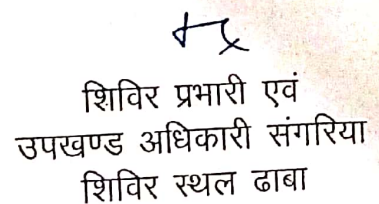 शिविर प्रभारी एवं
उपखण्ड अधिकारी संगरिया
शिविर स्थल ढाबा